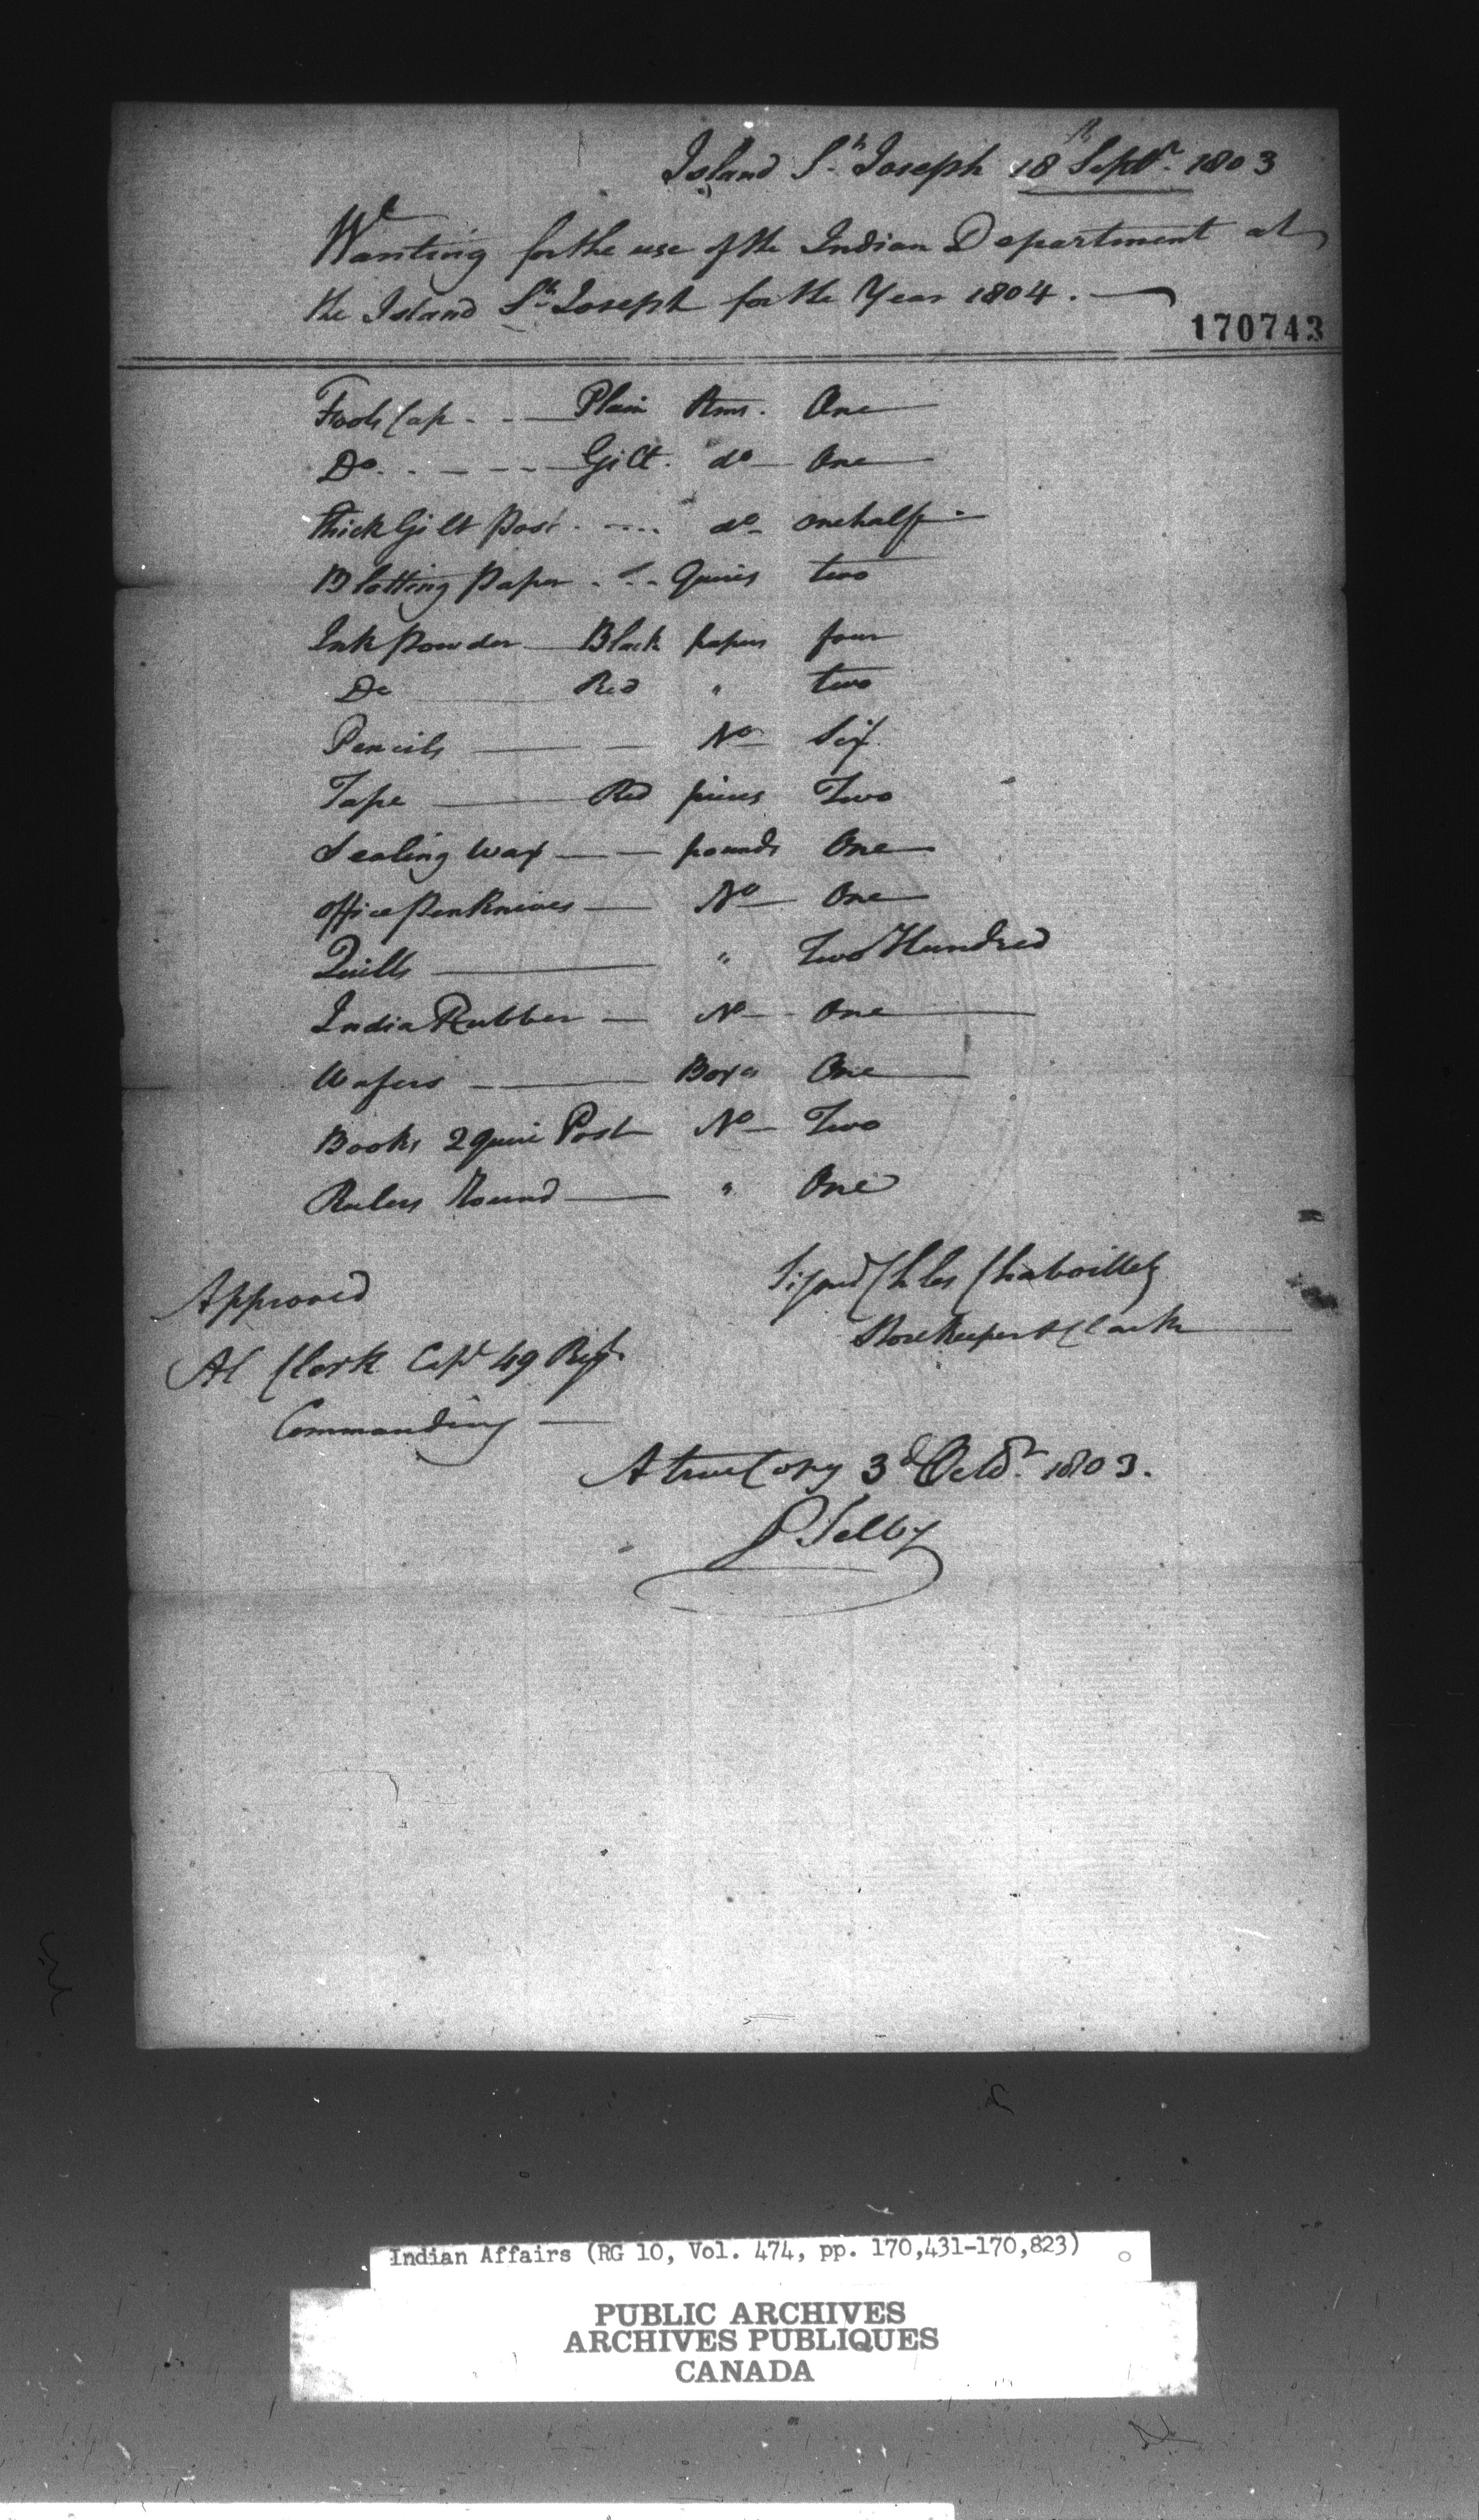 Island St. Joseph 18th Septr. 1803
Wanting for the use of the Indian Department at
the Island St. Joseph for the Year 1804.
170743
Fools Cap - - - Plain Rms. One
Do. - - - - Gilt. do One
thick Gilt Post - - - - do one half
Blotting Paper - - - Quires two
Ink Powder Black papers four
Do Red " two
Pencils No Six
Tape Red pieces Two
Sealing Wax pounds One
office PenKnives No One
Quills " Two Hundred
India Rubber No One
Wafers Boxes One
Books 2 quire Post No Two
Rulers Round " One
Signed Chles Chaboillez
StoreKeeper & Clark
Approved
Al Clerk Capt 49 Regt.
Commanding
A true Copy 3d Octbr. 1803.
P Selby
Indian Affairs (RG 10, Vol. 474, pp. 170,431-170,823)
PUBLIC ARCHIVES
ARCHIVES PUBLIQUES
CANADA